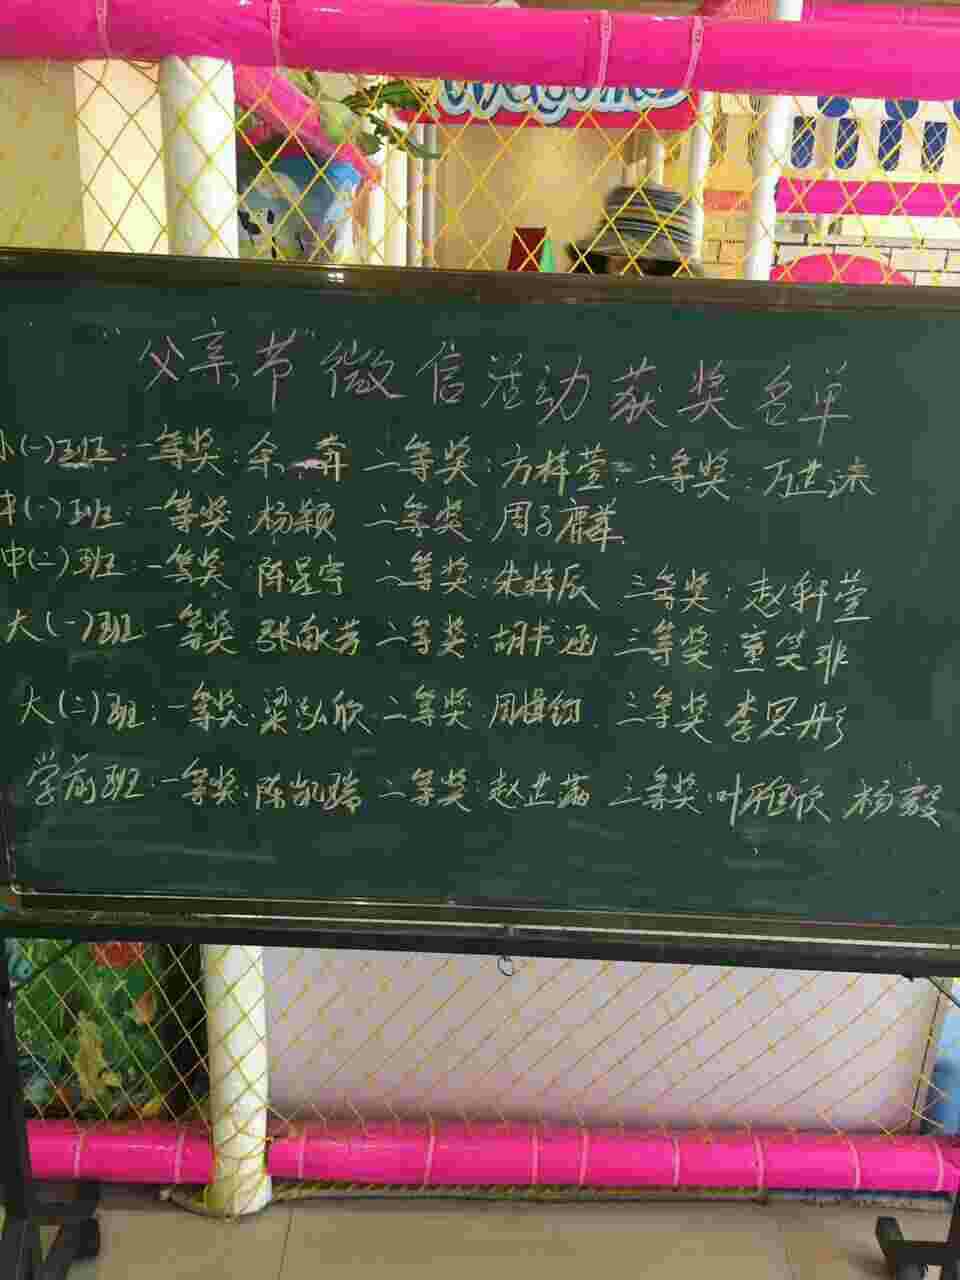 Welcome
"父亲节"微信活动获奖名单
小(一)班:一等奖:余 奔 二等奖:方梓萱 三等奖:万芷涞
中(一)班:一等奖:杨颖 二等奖:周子麒
中(二)班:一等奖:陈星宇 二等奖:朱梓辰 三等奖:赵轩萱
大(一)班:一等奖 张歆芳 二等奖:胡书涵 三等奖:童笑非
大(二)班:一等奖:梁弘欣 二等奖:周 三等奖:李思彤
学前班:一等奖:陈凯瑞 二等奖:赵芷涵 三等奖:叶雅欣 杨毅